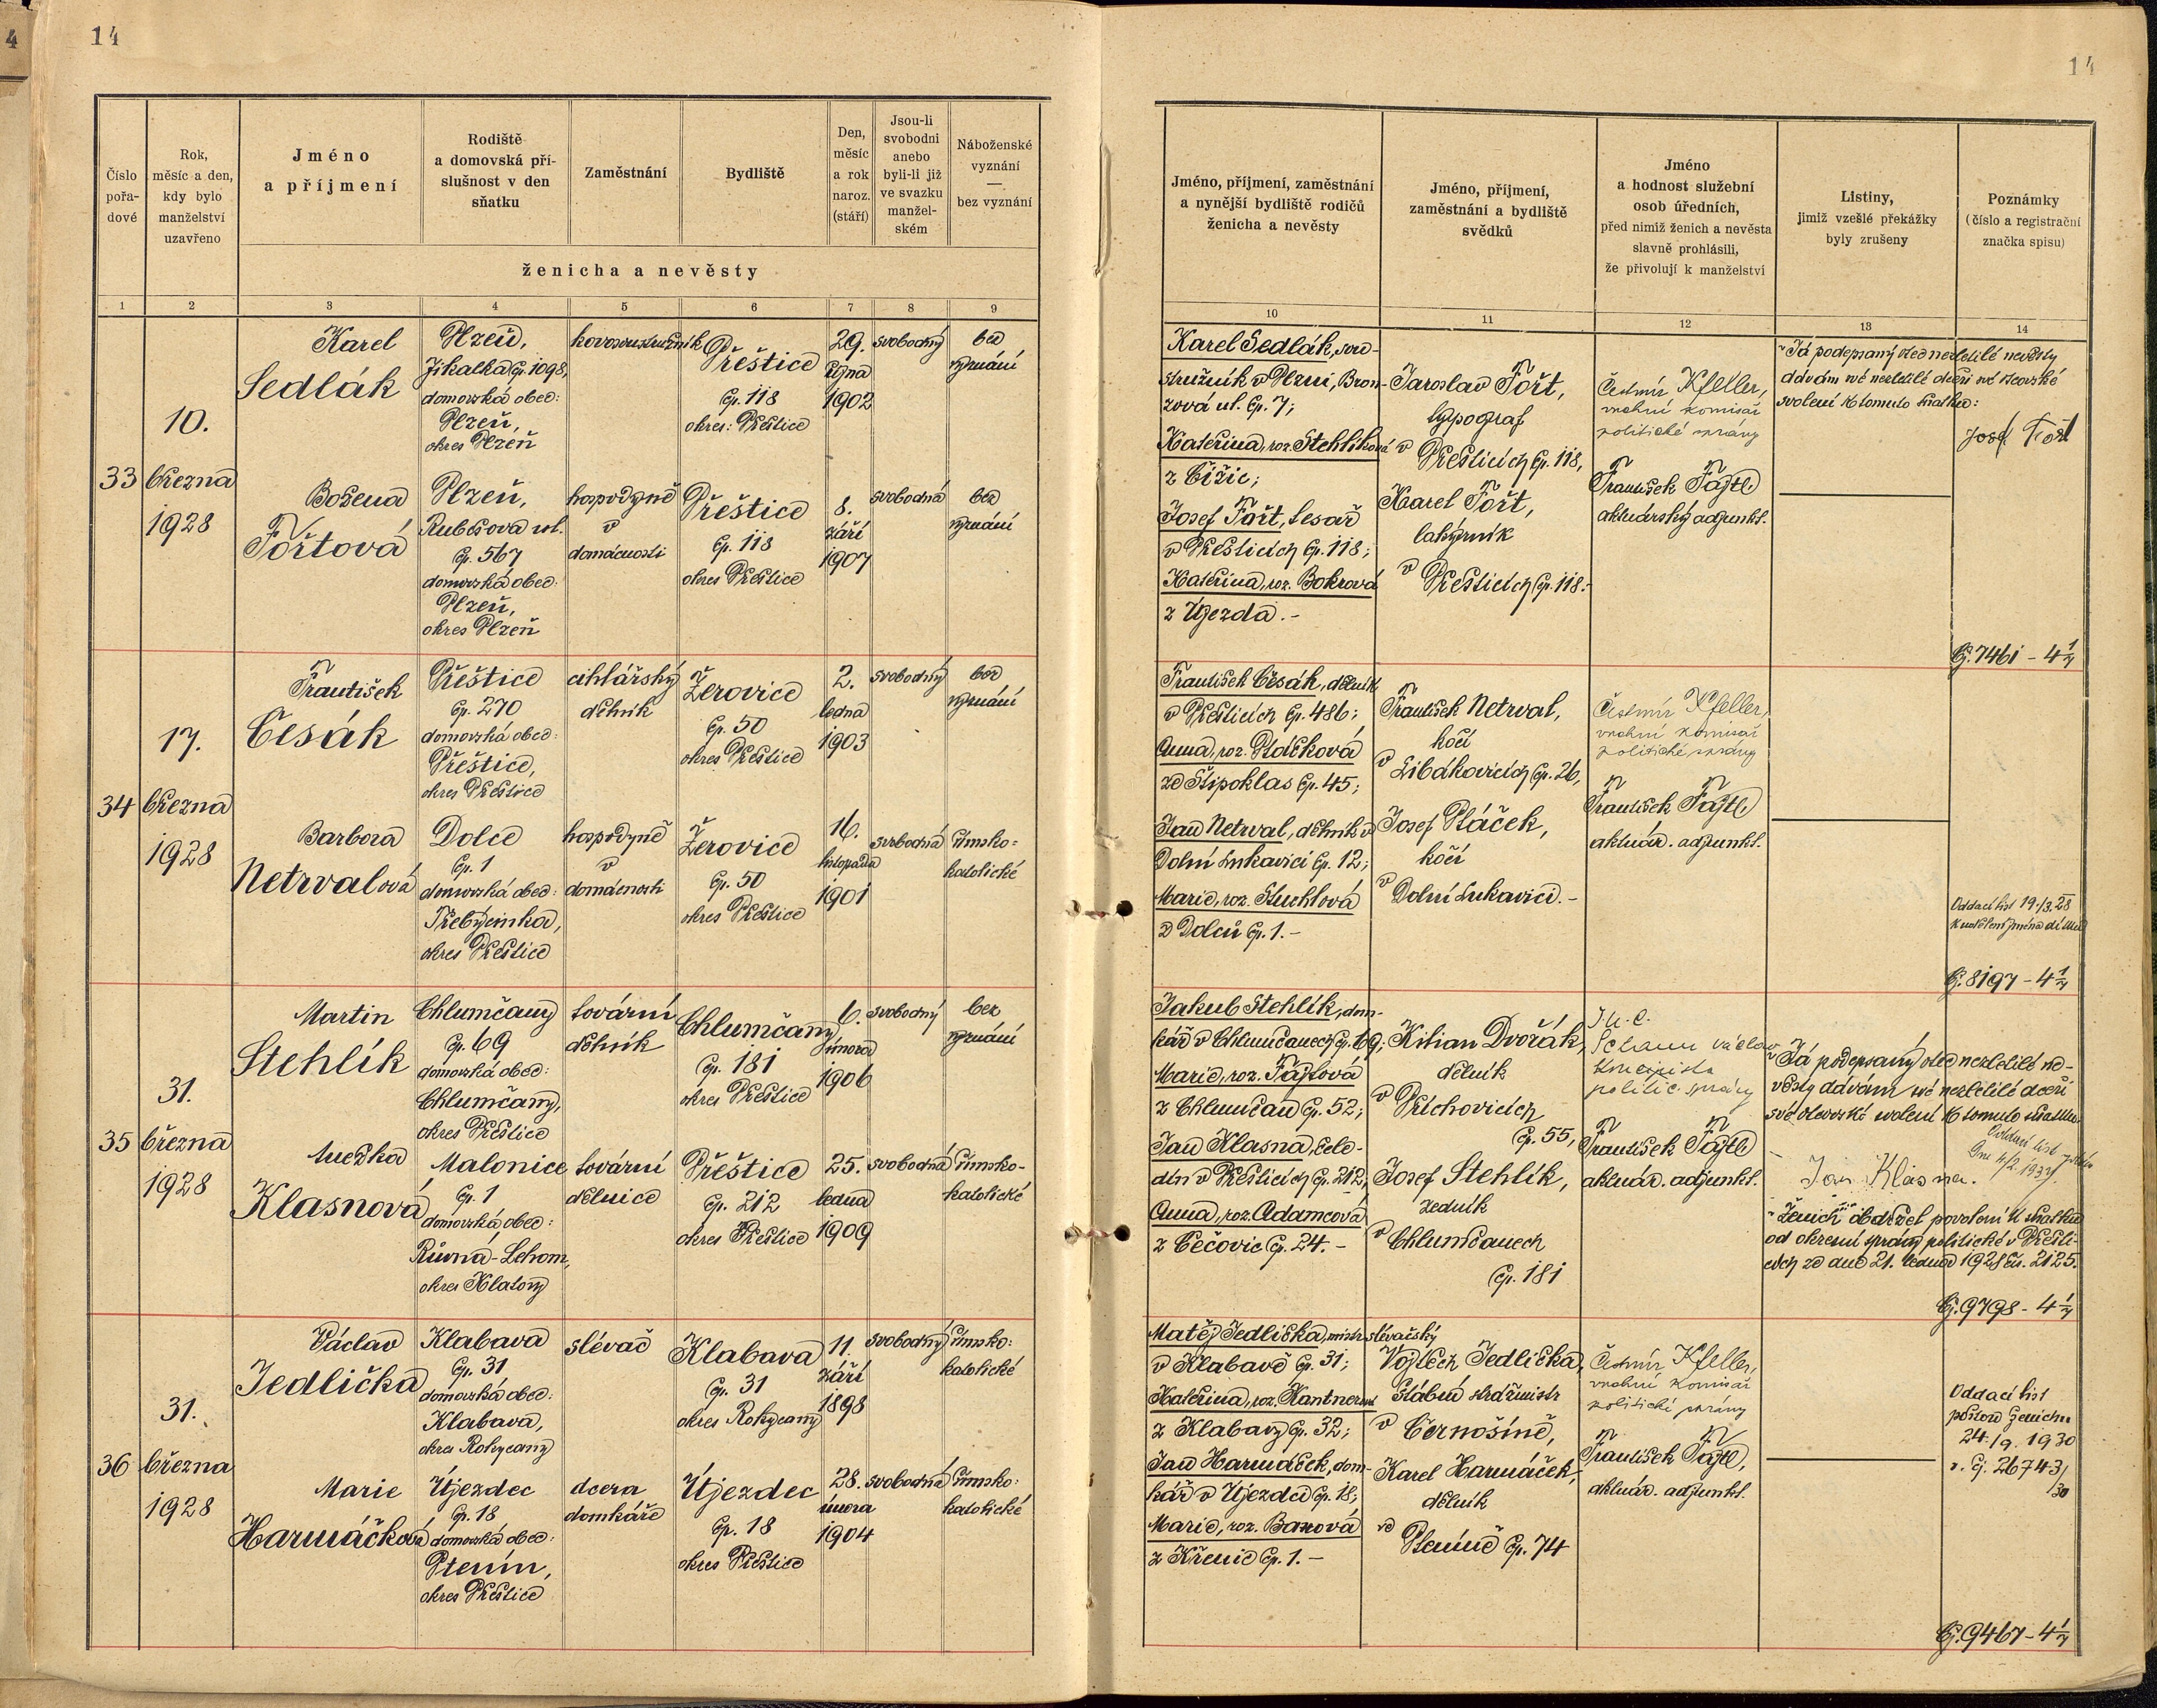 4
14
14
Číslo pořa-dové
Rok, měsíc a den, kdy bylo manželství uzavřeno
Jméno a příjmení
Rodiště a domovská pří-slušnost v den sňatku
Zaměstnání
Bydliště
Den, měsíc a rok naroz. (stáří)
Jsou-li svobodni anebo byli-li již ve svazku manžel-ském
Náboženské vyznání — bez vyznání
ženicha a nevěsty
Jméno, příjmení, zaměstnání a nynější bydliště rodičů ženicha a nevěsty
Jméno, příjmení, zaměstnání a bydliště svědků
Jméno a hodnost služební osob úředních, před nimiž ženich a nevěsta slavně prohlásili, že přivolují k manželství
Listiny, jimiž vzešlé překážky byly zrušeny
Poznámky (číslo a registrační značka spisu)
1 2 3 4 5 6 7 8 9 10 11 12 13 14
33
10.
března
1928
Karel
Sedlák
Plzeň,
Jikalka čp. 1098,
domovská obec:
Plzeň,
okres Plzeň
kovosoustružník
Přeštice
čp. 118
okres: Přeštice
29.
října
1902
svobodný
bez
vyznání
Božena
Fořtová
Plzeň,
Rubešova ul.
čp. 567
domovská obec:
Plzeň,
okres Plzeň
hospodyně
v
domácnosti
Přeštice
čp. 118
okres Přeštice
8.
září
1907
svobodná
bez
vyznání
Karel Sedlák, sou-
stružník v Plzni, Bron-
zová ul. čp. 7;
Kateřina, roz. Stehlíková
z Čižic;
Josef Fořt, tesař
v Přešticích čp. 118;
Kateřina, roz. Bokrová
z Újezda.-
Jaroslav Fořt,
typograf
v Přešticích čp. 118,
Karel Fořt,
lakýrník
v Přešticích čp. 118.-
Čestmír Kfeller,
vrchní komisař
politické správy
František Fajtl
aktuárský adjunkt.
"Já podepsaný otec nezletilé nevěsty
dávám své nezletilé dceři své otcovské
svolení k tomuto sňatku:
Josef Fořt
Čj. 7461 - 4 1/4
34
17.
března
1928
František
Česák
Přeštice
čp. 270
domovská obec:
Přeštice,
okres Přeštice
cihlářský
dělník
Žerovice
čp. 50
okres Přeštice
2.
ledna
1903
svobodný
bez
vyznání
Barbora
Netrvalová
Dolce
čp. 1
domovská obec:
Třebýcinka,
okres Přeštice
hospodyně
v
domácnosti
Žerovice
čp. 50
okres Přeštice
16.
listopadu
1901
svobodná
římsko-
katolické
František Česák, dělník
v Přešticích čp. 486;
Anna, roz. Ptáčková
ze Štipoklas čp. 45;
Jan Netrval, dělník v
Dolní Lukavici čp. 12;
Marie, roz. Stuchlová
z Dolců čp. 1.-
František Netrval,
kočí
v Libákovicích čp. 26,
Josef Ptáček,
kočí
v Dolní Lukavici.-
Čestmír Kfeller,
vrchní komisař
politické správy
František Fajtl
aktuár. adjunkt.
Oddací list 19./3.28
Čj. 8197 - 4 1/4
35
31.
března
1928
Martin
Stehlík
Chlumčany
čp. 69
domovská obec:
Chlumčany,
okres Přeštice
tovární
dělník
Chlumčany
čp. 181
okres Přeštice
6.
února
1906
svobodný
bez
vyznání
Anežka
Klasnová
Malonice
čp. 1
domovská obec:
okres Klatovy
tovární
dělnice
Přeštice
čp. 212
okres Přeštice
25.
ledna
1909
svobodná
římsko-
katolické
Jakub Stehlík, dom-
kář v Chlumčanech čp. 69;
Marie, roz. Fajtová
z Chlumčan čp. 52;
Jan Klasna, čele-
dín v Přešticích čp. 212,
Anna, roz. Adamcová
z Čečovic čp. 24.-
Kilian Dvořák,
dělník
v Příchovicích
čp. 55,
Josef Stehlík,
zedník
v Chlumčanech
čp. 181
J.U.C.
koncipista
politic. správy
František Fajtl
aktuár. adjunkt.
"Já podepsaný otec nezletilé ne-
věsty dávám své nezletilé dceři
své otcovské svolení k tomuto sňatku.
Oddací list
Jan Klasna.
"Ženich obdržel povolení k sňatku
od okresní správy politické v Přešti-
cích ze dne 21. ledna 1928 čís. 2125.
Čj. 9798 - 4 1/4
36
31.
března
1928
Václav
Jedlička
Klabava
čp. 31
domovská obec:
Klabava,
okres Rokycany
slévač
Klabava
čp. 31
okres Rokycany
11.
září
1898
svobodný
římsko-
katolické
Marie
Harmáčková
Újezdec
čp. 18
domovská obec:
Ptenín,
okres Přeštice
dcera
domkáře
Újezdec
čp. 18
okres Přeštice
28.
února
1904
svobodná
římsko-
katolické
Matěj Jedlička, mistr slévačský
v Klabavě čp. 31;
Kateřina, roz. Kantnerová
z Klabavy čp. 32;
Jan Harmáček, dom-
kář v Újezdci čp. 18;
Marie, roz. Baxová
z Křenic čp. 1.-
Vojtěch Jedlička,
štábní strážmistr
v Černošíně,
Karel Harmáček,
dělník
ve Pteníně čp. 74
Čestmír Kfeller,
vrchní komisař
politické správy
František Fajtl,
aktuár. adjunkt.
Oddací list
poslán ženichu
24./9. 1930
v. čj. 26743/30
Čj. 9467 - 4 1/4